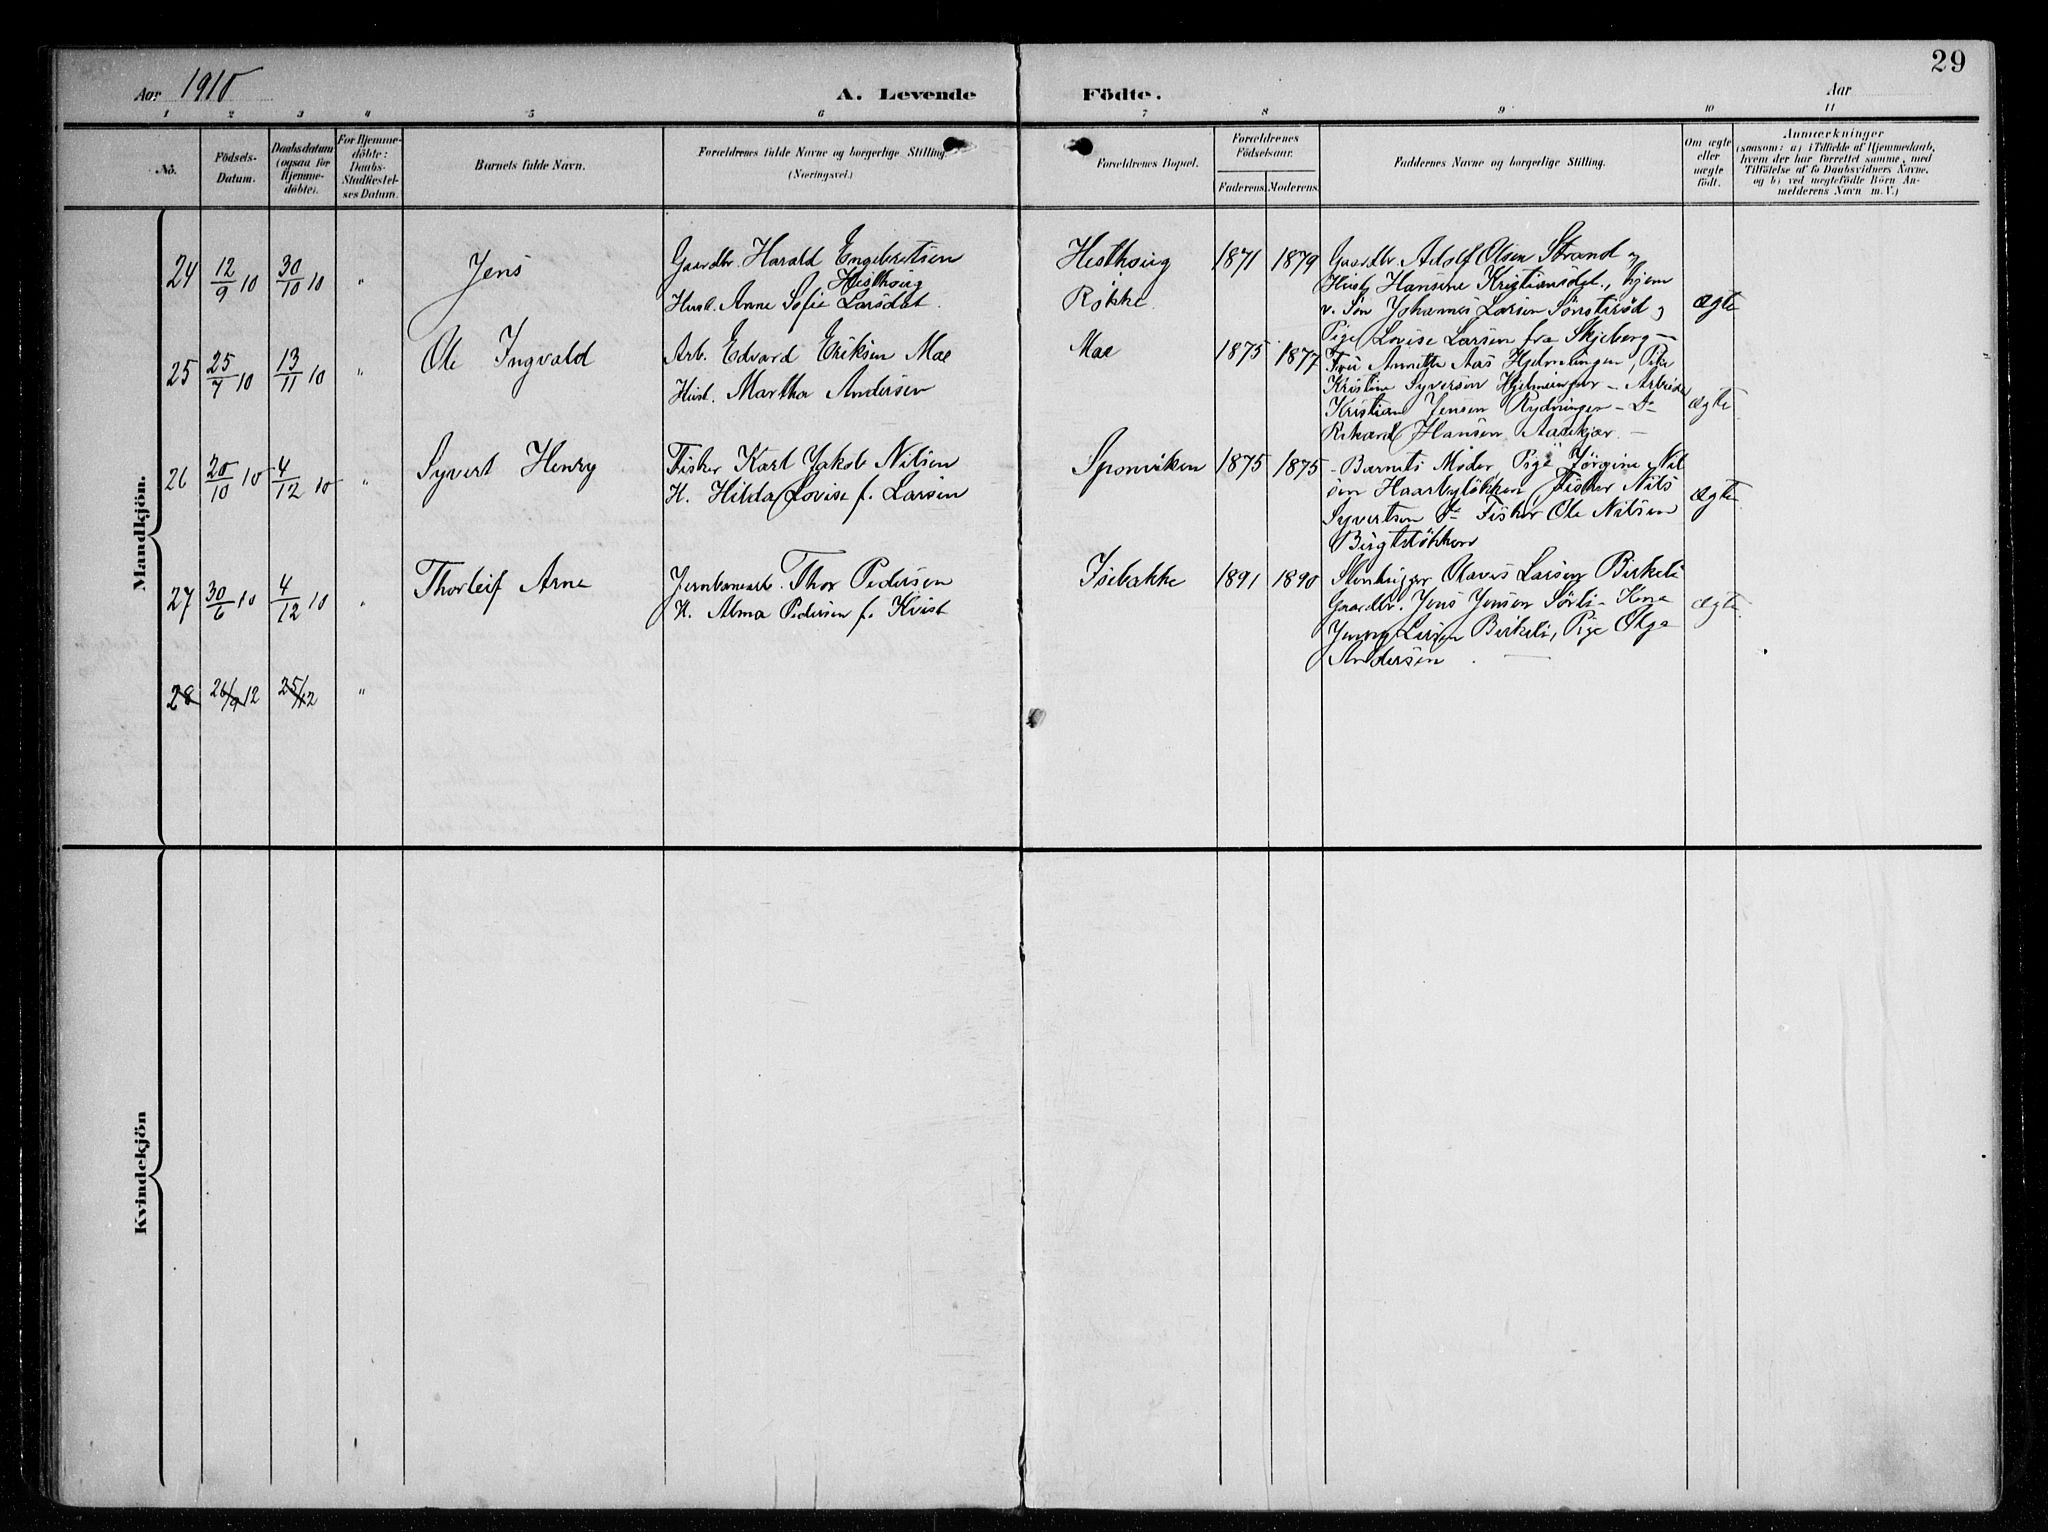 29
Aar 1910 A. Levende Födte. Aar
1 2 3 4 5 6 7 8 9 10 11
No. Födsels-Datum. Daabsdatum (ogsaa for Hjemmedöbte). For Hjemmedöbte: Daabs-Stadfæstelses Datum. Barnets fulde Navn. Forældrenes fulde Navne og borgerlige Stilling. (Næringsvei.) Forældrenes Bopæl. Forældrenes Födselsaar. Faderens. Moderens. Faddernes Navne og borgerlige Stilling. Om ægte eller uægte födt. Anmærkninger (saasom: a) i Tilfælde af Hjemmedaab, hvem der har forrettet samme, med Tilföielse af to Daabsvidners Navne. og b) ved uægtefödte Börn Anmelderens Navn m. V.)
Mandkjön.
24 12/9 10 30/10 10 " Jens Gaardbr. Harald Engebretsen 1871 1879 Gaardbr. Adolf Olsen Strand og
Hust. Anne Sofie Larsdat. Røkke Hust. Hansine Kristiansdat., hjem
v. Søn Johannes Larsen ægte
Pige Lovise Larsen fra Skjeberg —
25 25/7 10 13/11 10 " Ole Ingvald Arb. Edvard Eriksen Mae Mae 1875 1877 Aas Pige
Hust. Martha Andersen Kristine Syversen
Kristian Jensen Rydningen - Do ægte
Hansen —
26 20/10 10 4/12 10 " Syvert Henry Fisker Karl Jakob Nilsen Sponviken 1875 1875 - Barnets Moder, Pige Jørgine Nil
H. Hilda Lovise f. Larsen sen Haarbyløkken, Fisker Nils ægte
Syvertsen Do Fisker Ole Nilsen
27 30/6 10 4/12 10 " Thorleif Arne Jernbanearb. Thor Pedersen Isebakke 1891 1890 Stenhugger Olaves Larsen Birkeli
H. Alma Pedersen f. Kvist Gaardbr. Jens Jensen Sørli - Kone ægte
Jenny Larsen Birkeli, Pige Olga
Andersen. —
28 26/9 12 25/12 "
Kvindekjön